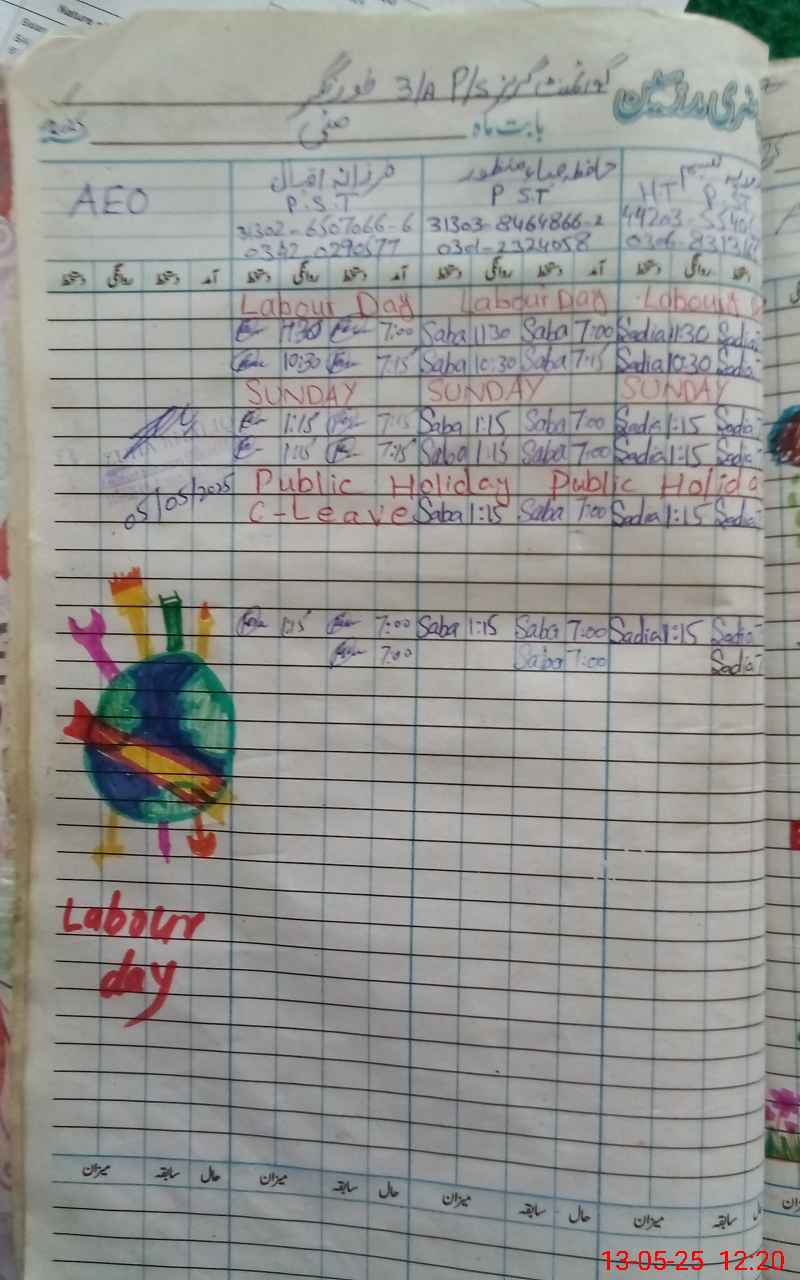 گورنمنٹ گرلز P/S 3/A فورڈنگر
حاضری مدرسین
بابت ماہ مئی
AEO
فرزانہ اقبال
P.S.T
31302-6507066-6
0342-0290577
حافظہ صباء منظور
P.S.T
31303-8464866-2
0301-2324058
HT P.ST
آمد دستخط روانگی دستخط آمد دستخط روانگی دستخط آمد دستخط روانگی دستخط
Labour Day Labour Day Labour
11:30 7:00 Saba 11:30 Saba 7:00 Sadia 11:30 Sadia
10:30 7:15 Saba 10:30 Saba 7:15 Sadia 10:30 Sadia
SUNDAY SUNDAY SUNDAY
1:15 7:15 Saba 1:15 Saba 7:00 Sadia 1:15 Sadia
1:15 7:15 Saba 1:15 Saba 7:00 Sadia 1:15 Sadia
05/05/2025
Public Holiday Public Holida
C-Leave Saba 1:15 Saba 7:00 Sadia 1:15 Sadia
1:15 7:00 Saba 1:15 Saba 7:00 Sadia 1:15 Sadia
7:00 Saba 7:00 Sadia
Labour
day
حال سابقہ میزان حال سابقہ میزان حال سابقہ میزان سابقہ میزان
13-05-25 12:20